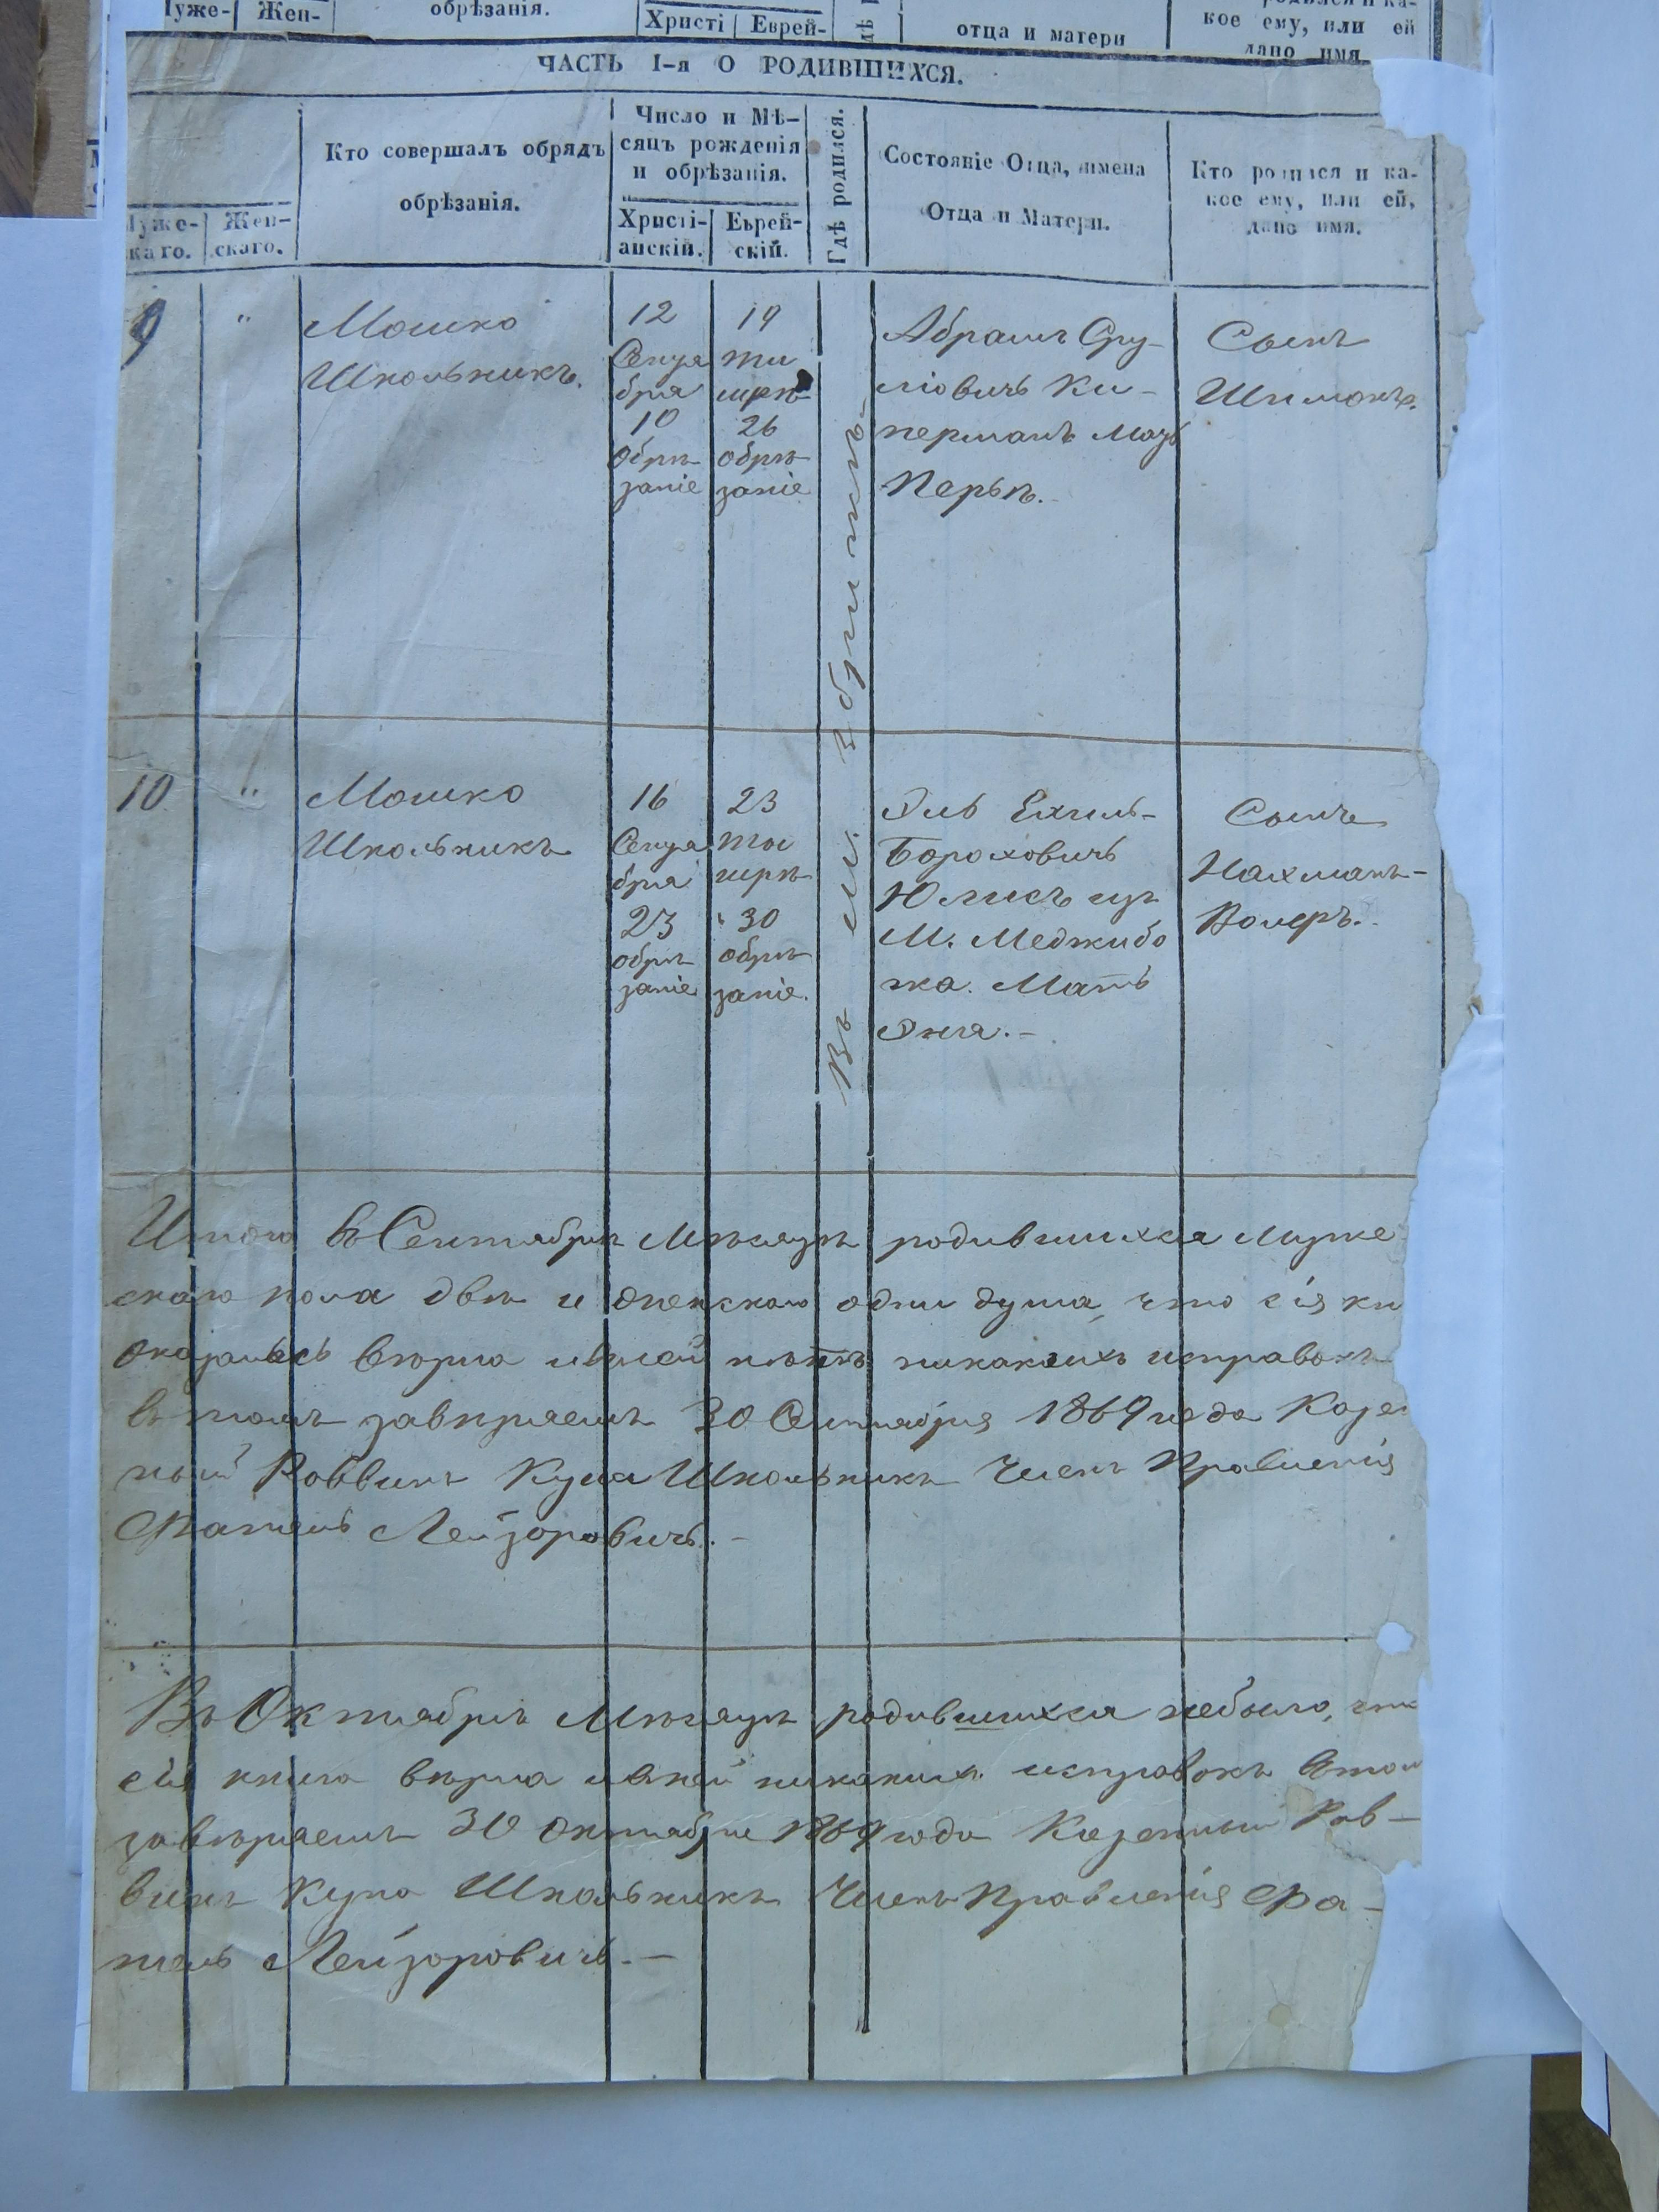 Муже-
Жен-
обрѣзанія.
Христі
Еврей-
отца и матери
кое ему, или ей
дано имя.
ЧАСТЬ I-я О РОДИВШИХСЯ.
Муже-
каго.
Жен-
скаго.
Кто совершалъ обрядъ
обрѣзанія.
Число и Мѣ-
сяцъ рожденія
и обрѣзанія.
Христі-
анскій.
Еврей-
скій.
Гдѣ родился.
Состояніе Отца, имена
Отца и Матери.
Кто родился и ка-
кое ему, или ей,
дано имя.
9
"
Мошко
Школьникъ.
12
Сентя
бря
10
Обрѣ
заніе
19
ти
шрѣ
26
обрѣ
заніе
Абрамъ Сру-
ліовичъ Ки-
перманъ Мать
Перля.
Сынъ
Шимонъ.
Въ м. Збрижѣ
10
"
Мошко
Школьникъ
16
Сентя
бря
23
обрѣ
заніе
23
ти
шрѣ
30
обрѣ
заніе.
Эль Ехиль-
Бороховичъ
изъ
М. Меджибо
жа. Мать
Эня.-
Сынъ
Нахманъ-
Итого въ Сентябрѣ Мѣсяцѣ родившихся Муже
скаго пола двѣ и женскаго одни душа, что сія кн
оказалась вѣрна и в ней нѣтъ никакихъ исправокъ
в томъ завѣряемъ 30 Сентября 1869 года Казен
ный Раввинъ Школьникъ Членъ Правленія
Лейзоровичъ.-
Въ Октябрѣ Мѣсяцѣ родившихся небыло, что
сія книга вѣрна и в ней никакихъ исправокъ в том
завѣряемъ 30 Октября 1869 года Казенный Рав-
винъ Школьникъ Членъ Правленія
Лейзоровичъ.-